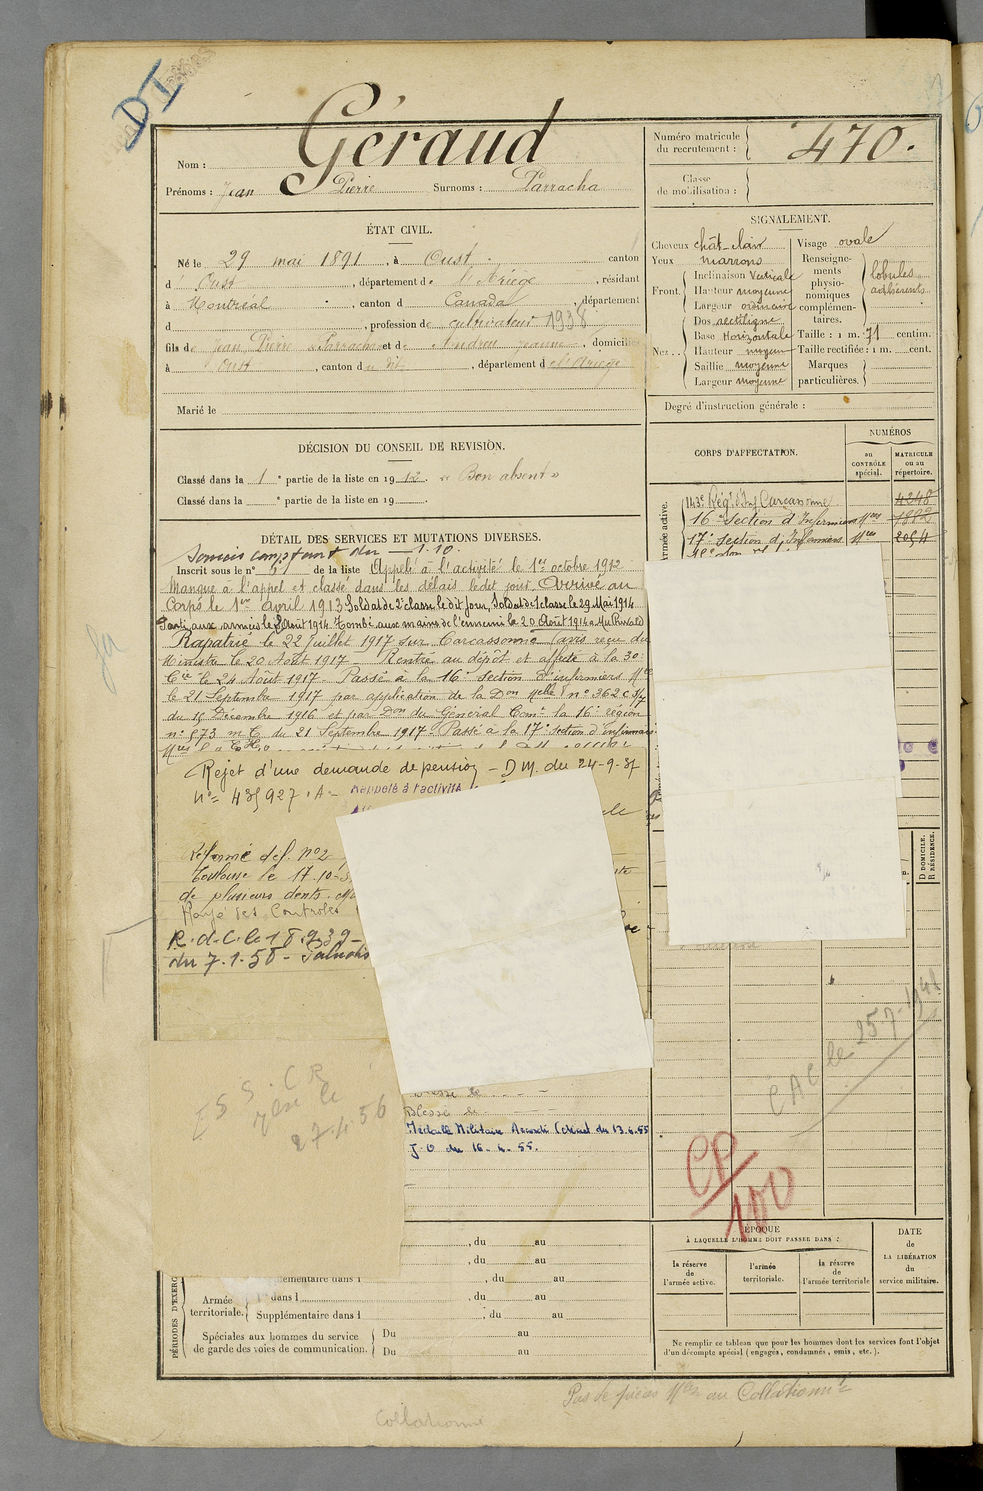 DT
Nom : Géraud
Prénoms : Jean Pierre Surnoms : Parracha
Numéro matricule du recrutement : 470.
Classe de mobilisation :
ÉTAT CIVIL.
Né le 29 mai 1891, à Oust canton
d' Oust, département de l'Ariège, résidant
à Montréal, canton d Canada, département
d , profession de cultivateur 1938
fils de Jean Pierre Parracha et de Andreu Jeanne, domiciliés
à Oust, canton du dit, département de l'Ariège
Marié le
SIGNALEMENT.
Cheveux chât-clair
Yeux marrons
Front. Inclinaison Verticale
Hauteur moyenne
Largeur ordinaire
Nez. Dos rectiligne
Base Horizontale
Hauteur moyen
Saillie moyenne
Largeur moyenne
Visage ovale
Renseignements physionomiques complémentaires. lobules adhérents
Taille : 1 m. 71 centim.
Taille rectifiée : 1 m. cent.
Marques particulières.
Degré d'instruction générale :
DÉCISION DU CONSEIL DE REVISION.
Classé dans la 1e partie de la liste en 1912 « Bon absent »
Classé dans la e partie de la liste en 19
CORPS D'AFFECTATION.
NUMÉROS
au CONTRÔLE spécial.
MATRICULE ou au répertoire.
Armée active.
143e Régt d'Inf Carcassonne 4248
16e Section d'Infirmiers Mres 1883
17e Section d'Infirmiers Mres
DÉTAIL DES SERVICES ET MUTATIONS DIVERSES.
Services comptant du 1.10.
Inscrit sous le n° de la liste Appelé à l'activité le 1er octobre 1912
Manque à l'appel et classé dans les délais ledit jour. Arrivé au
Corps le 1er avril 1913 Soldat de 2e classe le dit jour, Soldat de 1e classe le 29 Mai 1914
Parti aux armées le 8 Août 1914. Tombé aux mains de l'ennemi le 20 Août 1914
Rapatrié le 22 juillet 1917 sur Carcassonne (avis reçu du
Ministre le 20 Août 1917 - Rentré au dépôt et affecté à la 30e
Cie le 24 Août 1917 - Passé à la 16e Section d'infirmiers Mres
le 21 Septembre 1917 par application de la Don Melle n° 362
du 15 Décembre 1916 et par Don du Général Comt la 16e région
n° 573 du 21 Septembre 1917. Passé à la 17e section d'infirmiers
Rejet d'une demande de pension - D.M. du 24-9-37
n° 435927 .A -
Rappelé à l'activité
Réformé déf. n°2
Toulouse le 17.10
de plusieurs dents.
Rayé des Contrôles
R.d.C. le 18.9.39 -
du 7.1.50 -
S.C.R
le
27.4.56
Blessé le
Blessé le
Médaille Militaire Accordé (décret du 13.4.55
J.O du 16.4.55.
D DOMICILE. R RÉSIDENCE.
CAC le 25.7.1941
CP/100
, du au
, du au
PÉRIODES D'EXERC
Supplémentaire dans l , du au
Armée territoriale. dans l , du au
Supplémentaire dans l , du au
Spéciales aux hommes du service de garde des voies de communication. Du au
Du au
ÉPOQUE
À LAQUELLE L'HOMME DOIT PASSER DANS :
la réserve de l'armée active.
l'armée territoriale.
la réserve de l'armée territoriale
DATE de LA LIBÉRATION du service militaire.
Ne remplir ce tableau que pour les hommes dont les services font l'objet
d'un décompte spécial (engagés, condamnés, omis, etc.).
Pas de pièces Mres au Collationné
Collationné